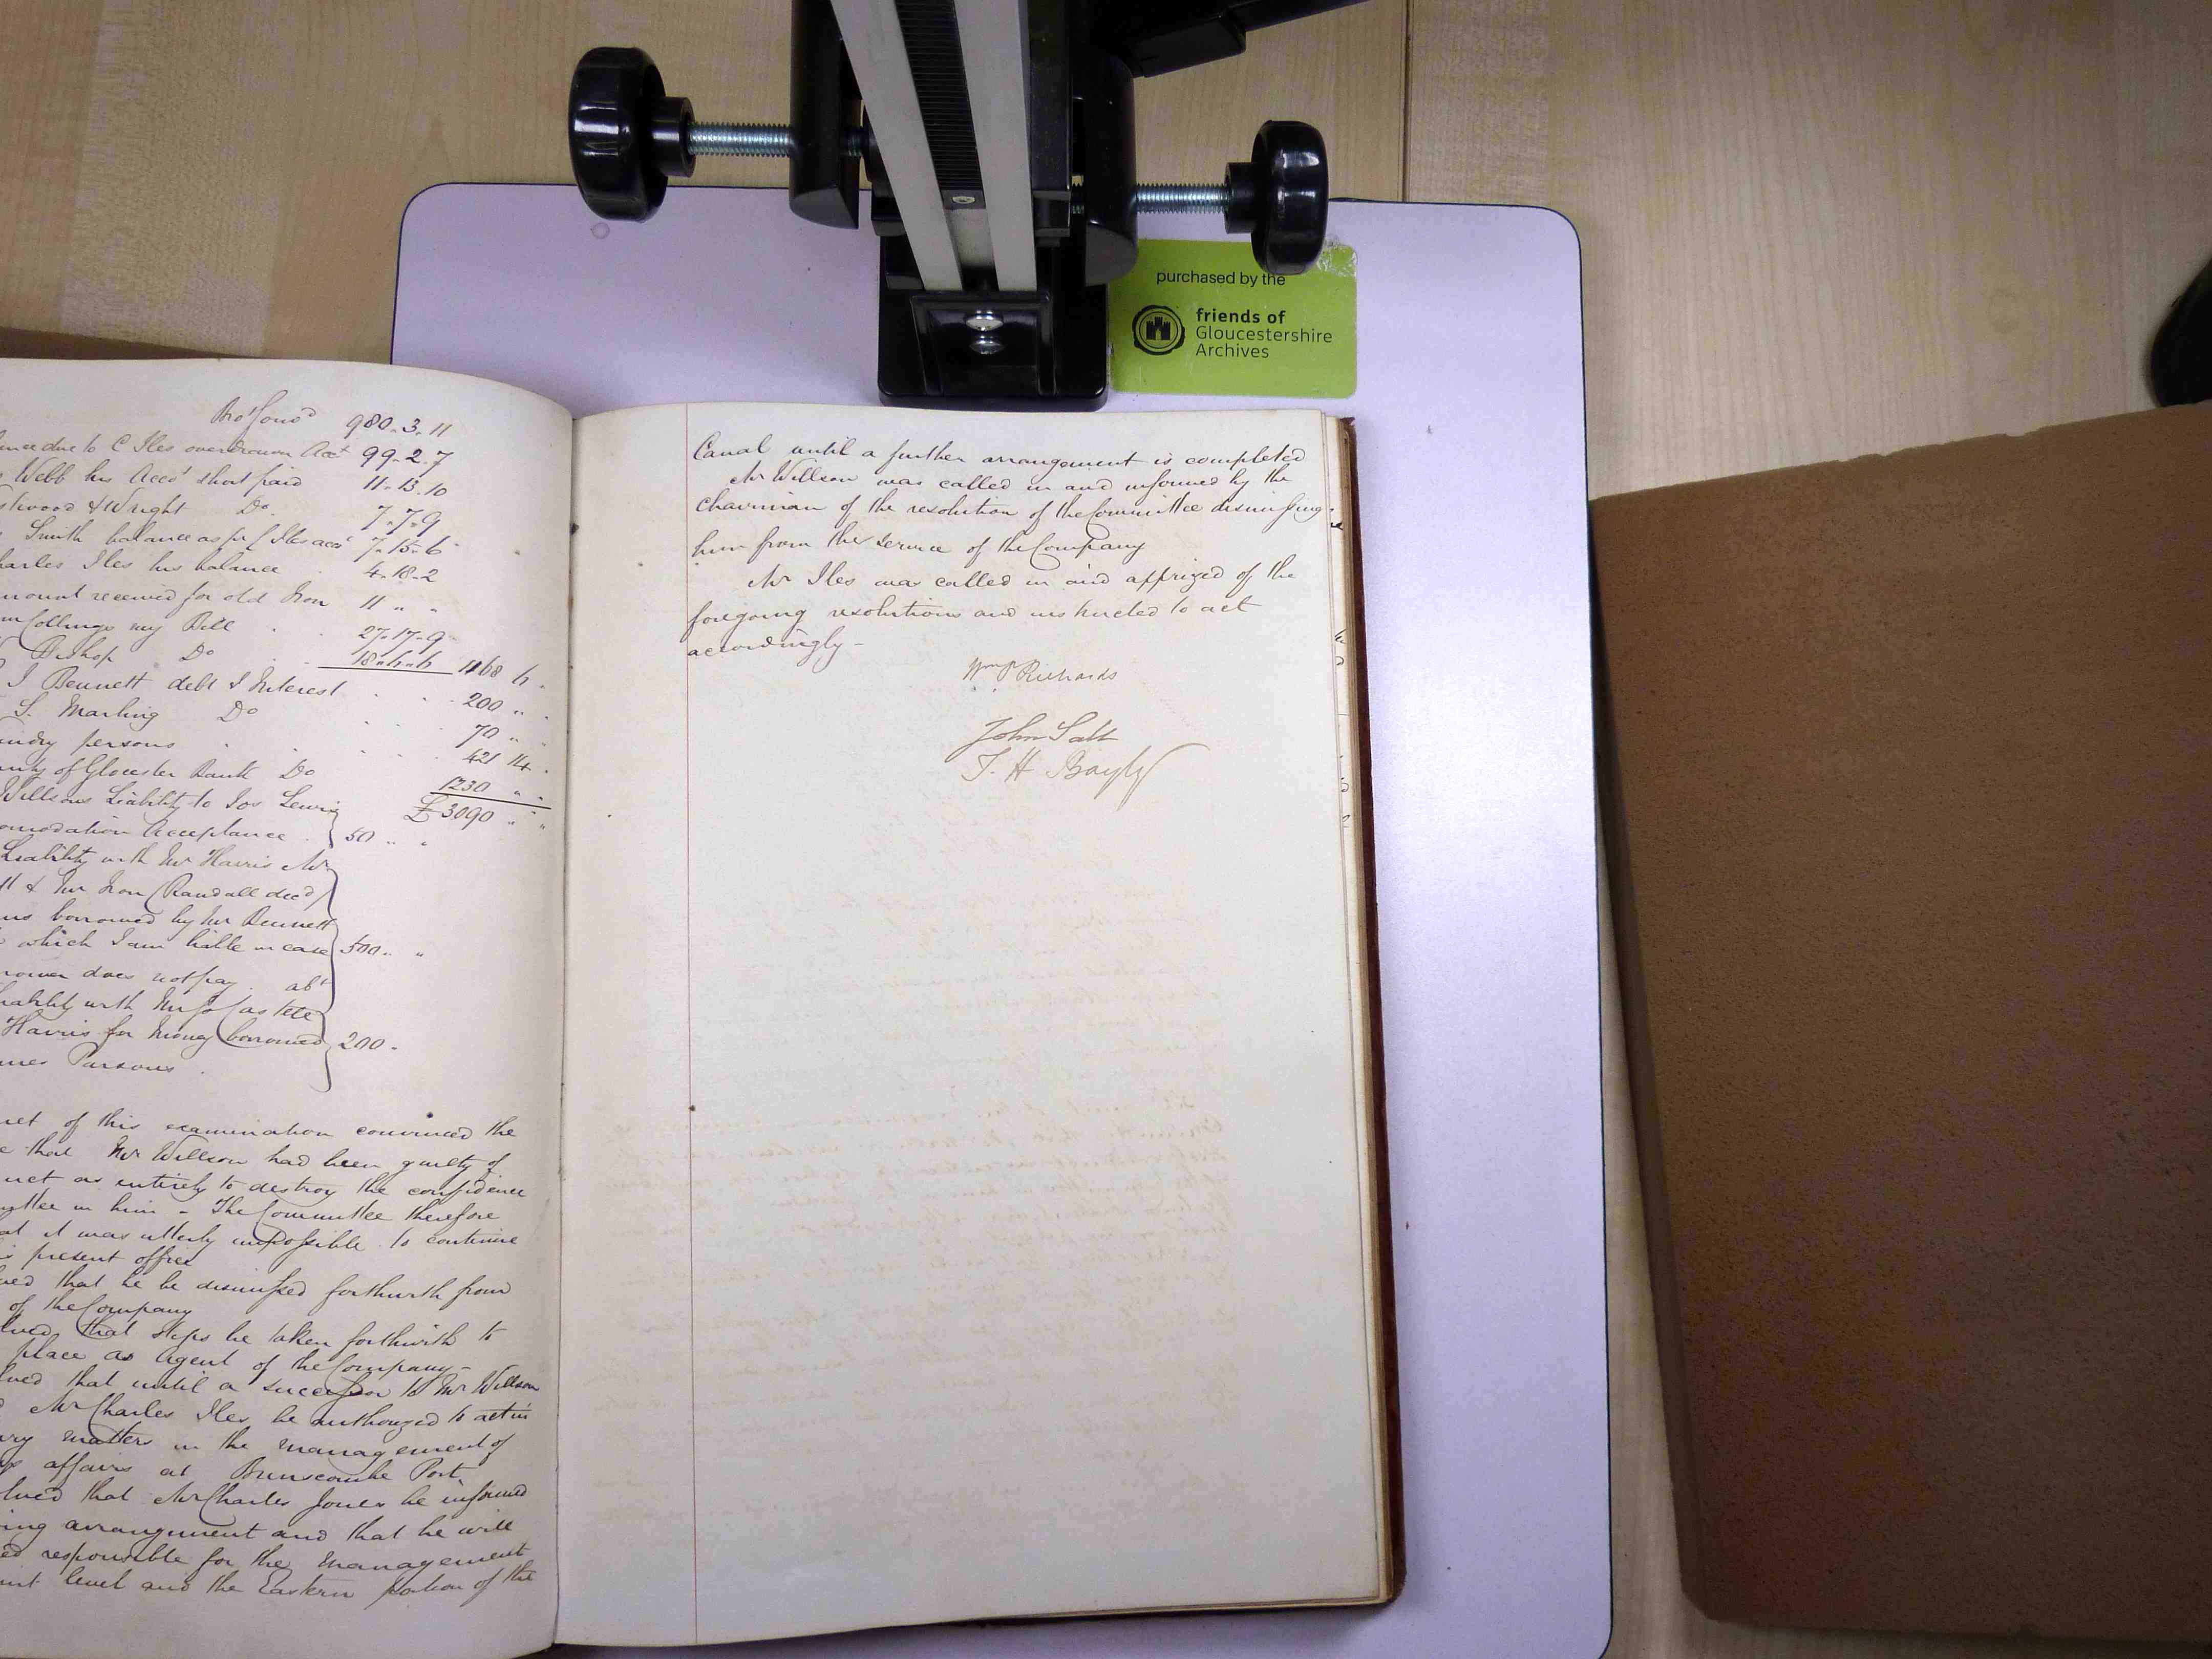 purchased by the
friends of
Gloucestershire
Archives
Bro't forwd 980.3.11
due to C Iles overdrawn Acct 99.2.7
Webb his Accot short paid 11.13.10
& Wright Do. 7.7.9
Smith balance as pr C Iles acct 7.15.6
Charles Iles his balance 4.18.2
amount received for old Iron 11 " "
Collings my Bill 27.17.9
Bishop Do 18.6.6 1168 6 "
J Bennett debt & Interest 200 " "
S. Marling Do 70 " "
sundry persons 421 14 "
of Glocester Bank Do 1230 " "
£3090 " "
Willsons Liability to Jos Lewis
Acceptance 50 " "
Liability with Mr Harris Mr
& Mr Iron (Randall decd)
borrowed by Mr Bennett
which I am liable in case 500 " "
does not pay abt
liability with Mr
Harris for Money borrowed 200 -
Parsons
of this examination convinced the
that Mr Willson had been guilty of
as entirely to destroy the confidence
in him - The Committee therefore
it was utterly impossible to continue
present office
that he be dismissed forthwith from
of the Company
that steps be taken forthwith to
place as Agent of the Company -
that until a successor to Mr Willson
Mr Charles Iles be authorized to act in
matters in the management of
affairs at Brimscombe Port
that Mr Charles Jones be informed
arrangement and that he will
responsible for the management
level and the Eastern portion of the
Canal until a further arrangement is completed
Mr Willson was called in and informed by the
Chairman of the resolution of the Committee dismissing
him from the service of the Company
Mr Iles was called in and apprized of the
foregoing resolutions and instructed to act
accordingly -
Wm P Richards
John Salt
T. H Bayly